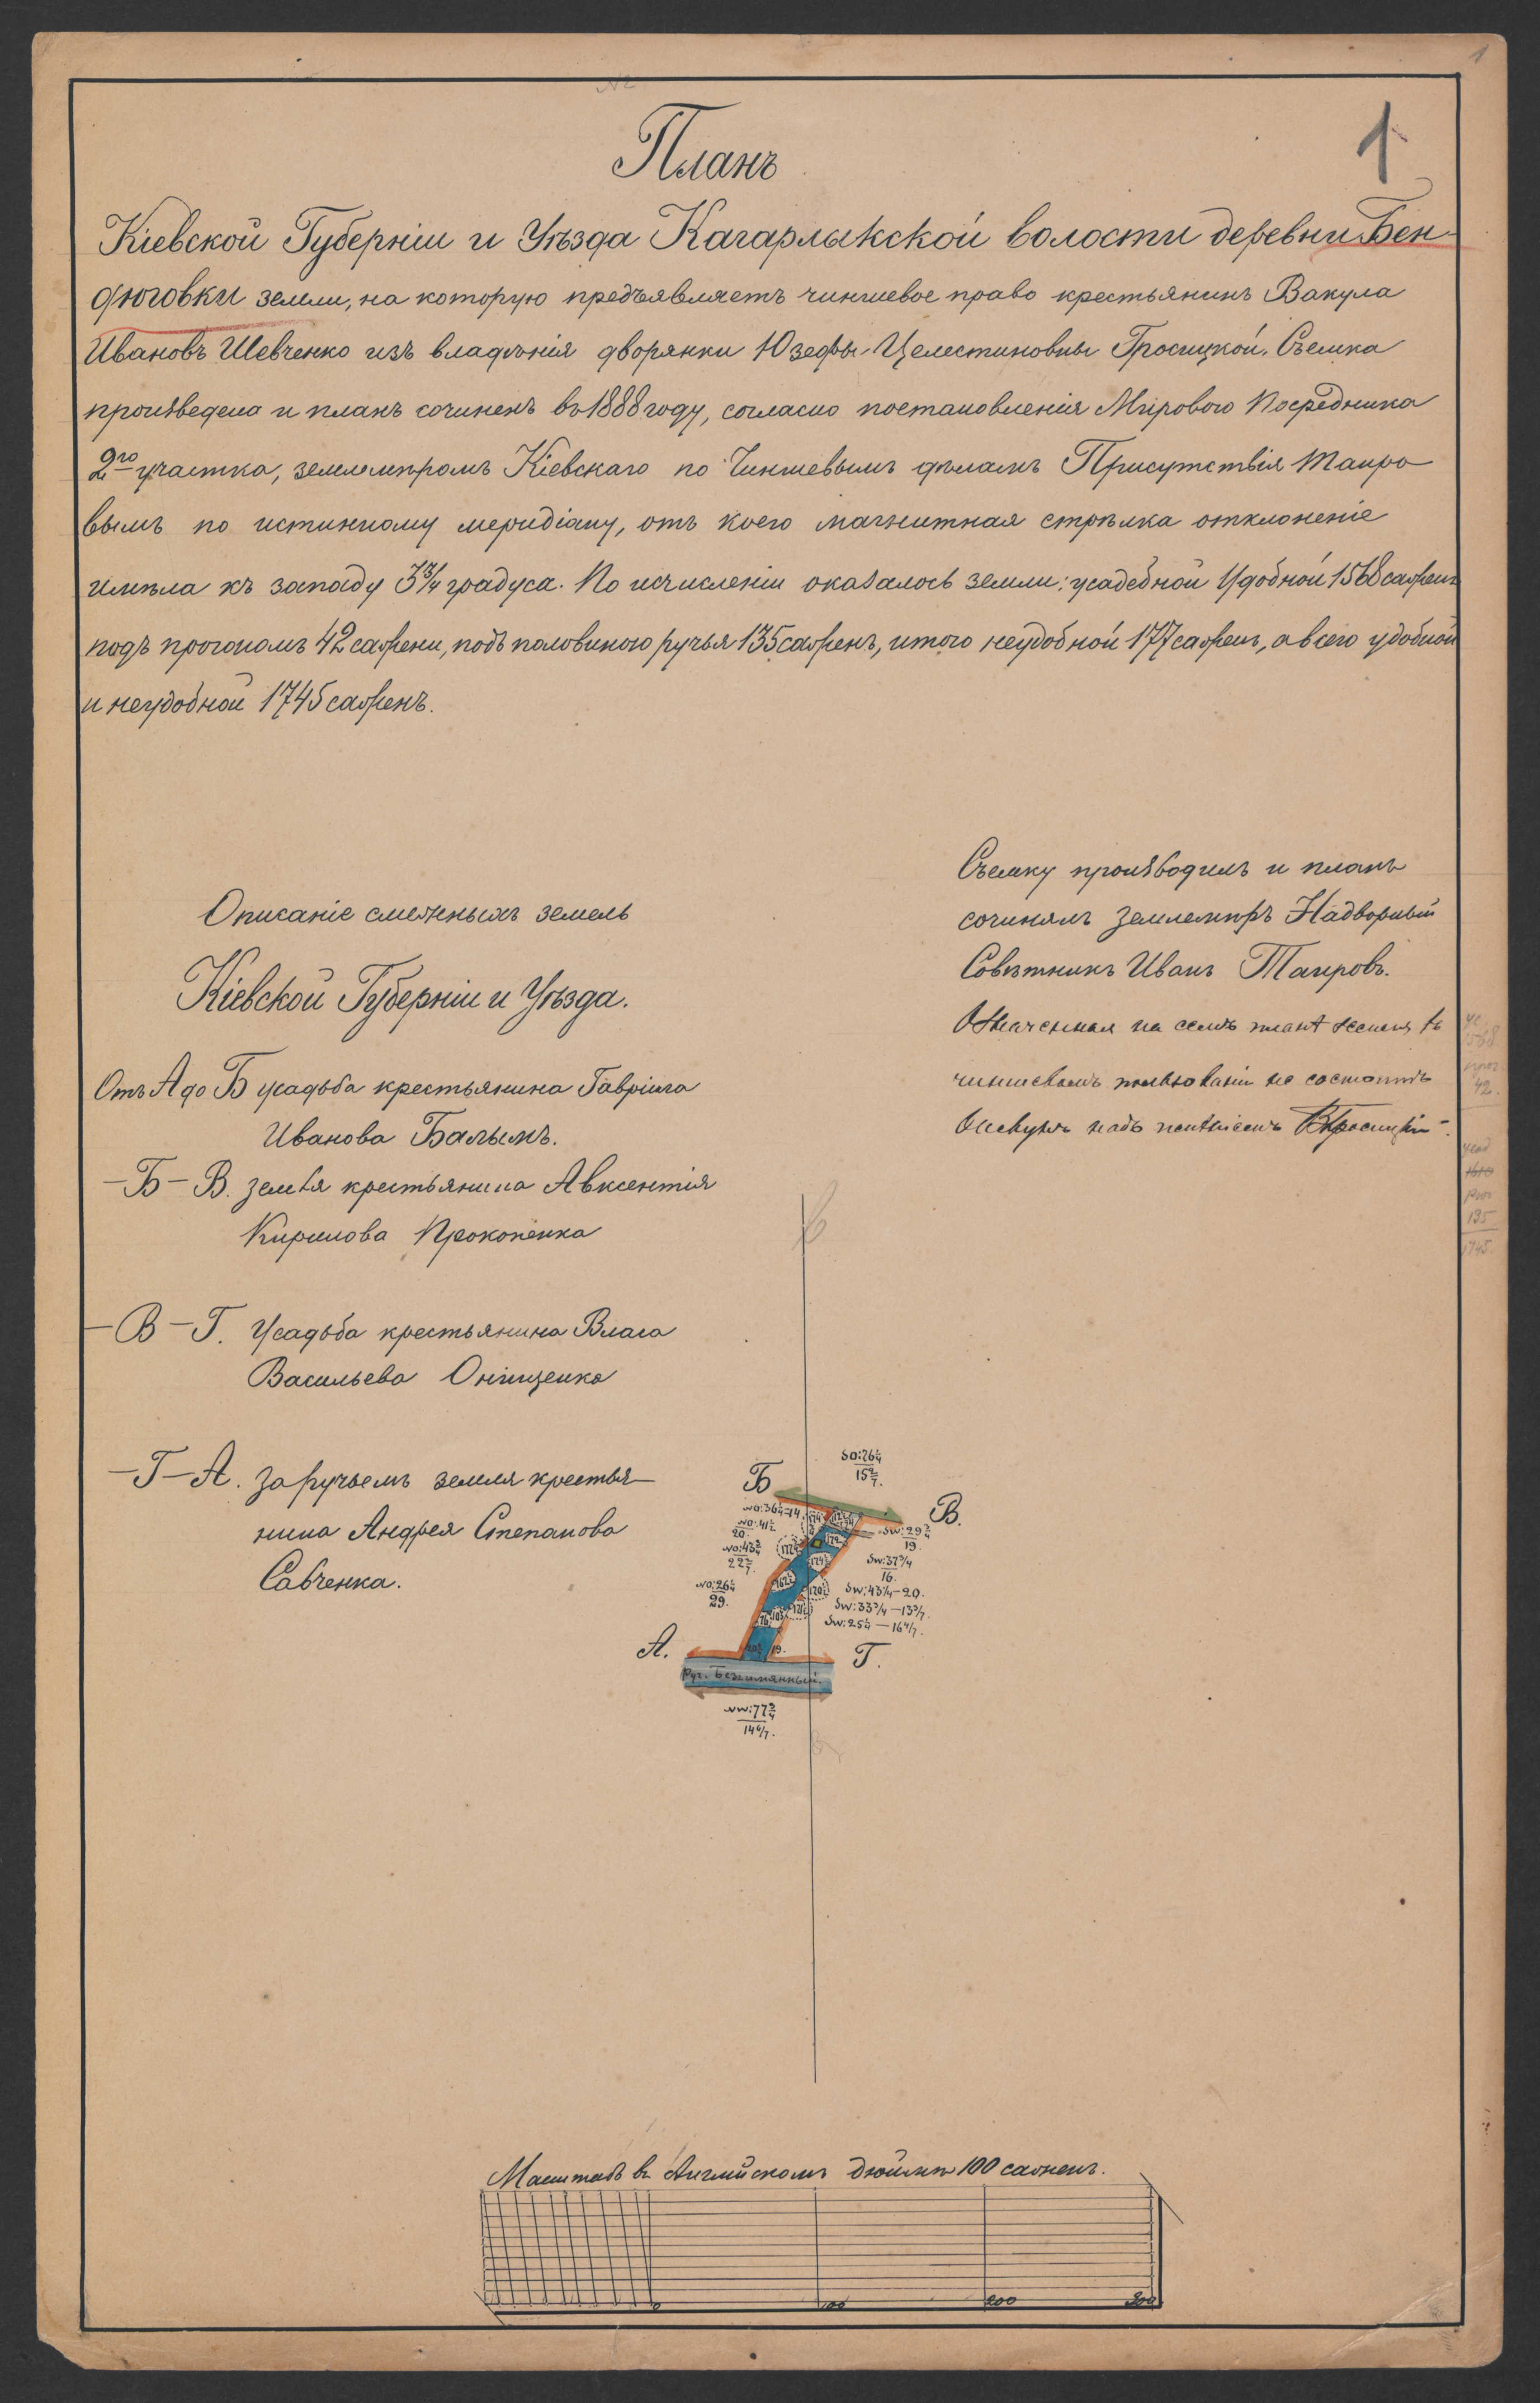 1
1
Планъ
Кіевской Губерніи и Уѣзда Кагарлыкской волости деревни Бен-
дюговки земли, на которую предъявляетъ чиншевое право крестьянинъ Вакула
Ивановъ Шевченко изъ владѣнія дворянки Юзефы Целестиновны Гросицкой. Съемка
произведена и планъ сочиненъ въ 1888 году, согласно постановленія Мирового Посредника
2го участка, землемѣромъ Кіевскаго по Чиншевымъ дѣламъ Присутствія Таиро
вымъ по истинному меридіану, отъ коего магнитная стрѣлка отклоненіе
имѣла къ западу 3¾ градуса. По исчисленіи оказалось земли: усадебной Удобной 1568 сажень
подъ прогономъ 42 сажени, подъ половиною ручья 135 сажень, итого неудобной 177 сажень, а всего удобной
и неудобной 1745 сажень.
Съемку производилъ и планъ
сочинялъ землемѣръ Надворный
Совѣтникъ Иванъ Таировъ.
Означенная на семъ планѣ въ
чиншевомъ пользованіи не состоитъ
Опекунъ надъ
Описаніе смежныхъ земель
Кіевской Губерніи и Уѣзда.
Отъ А до Б усадьба крестьянина Гавріила
Иванова Балымъ.
—Б—В. земля крестьянина Авксентія
Кирилова Прокопенка
—В—Г. Усадьба крестьянина Власа
Васильева Онищенка
—Г—А. за ручьемъ земля крестья-
нина Андрея Степанова
Савченка.
42.
135
1745.
SO:76¼
15 2/7.
Б
В.
NO:36¼-14.
NO:41½
20.
NO:43¾
22 2/7.
NO:26¼
29.
SW:29¾
19.
SW:37¾
16.
SW:43¼-20.
SW:33¾-13 3/7.
SW:25¼-16 4/7.
А.
Г.
19.
Руч. Безимянный.
NW:77¾
14 6/7.
Масштабъ въ Англійскомъ дюймѣ 100 сажень.
0 100 200 300